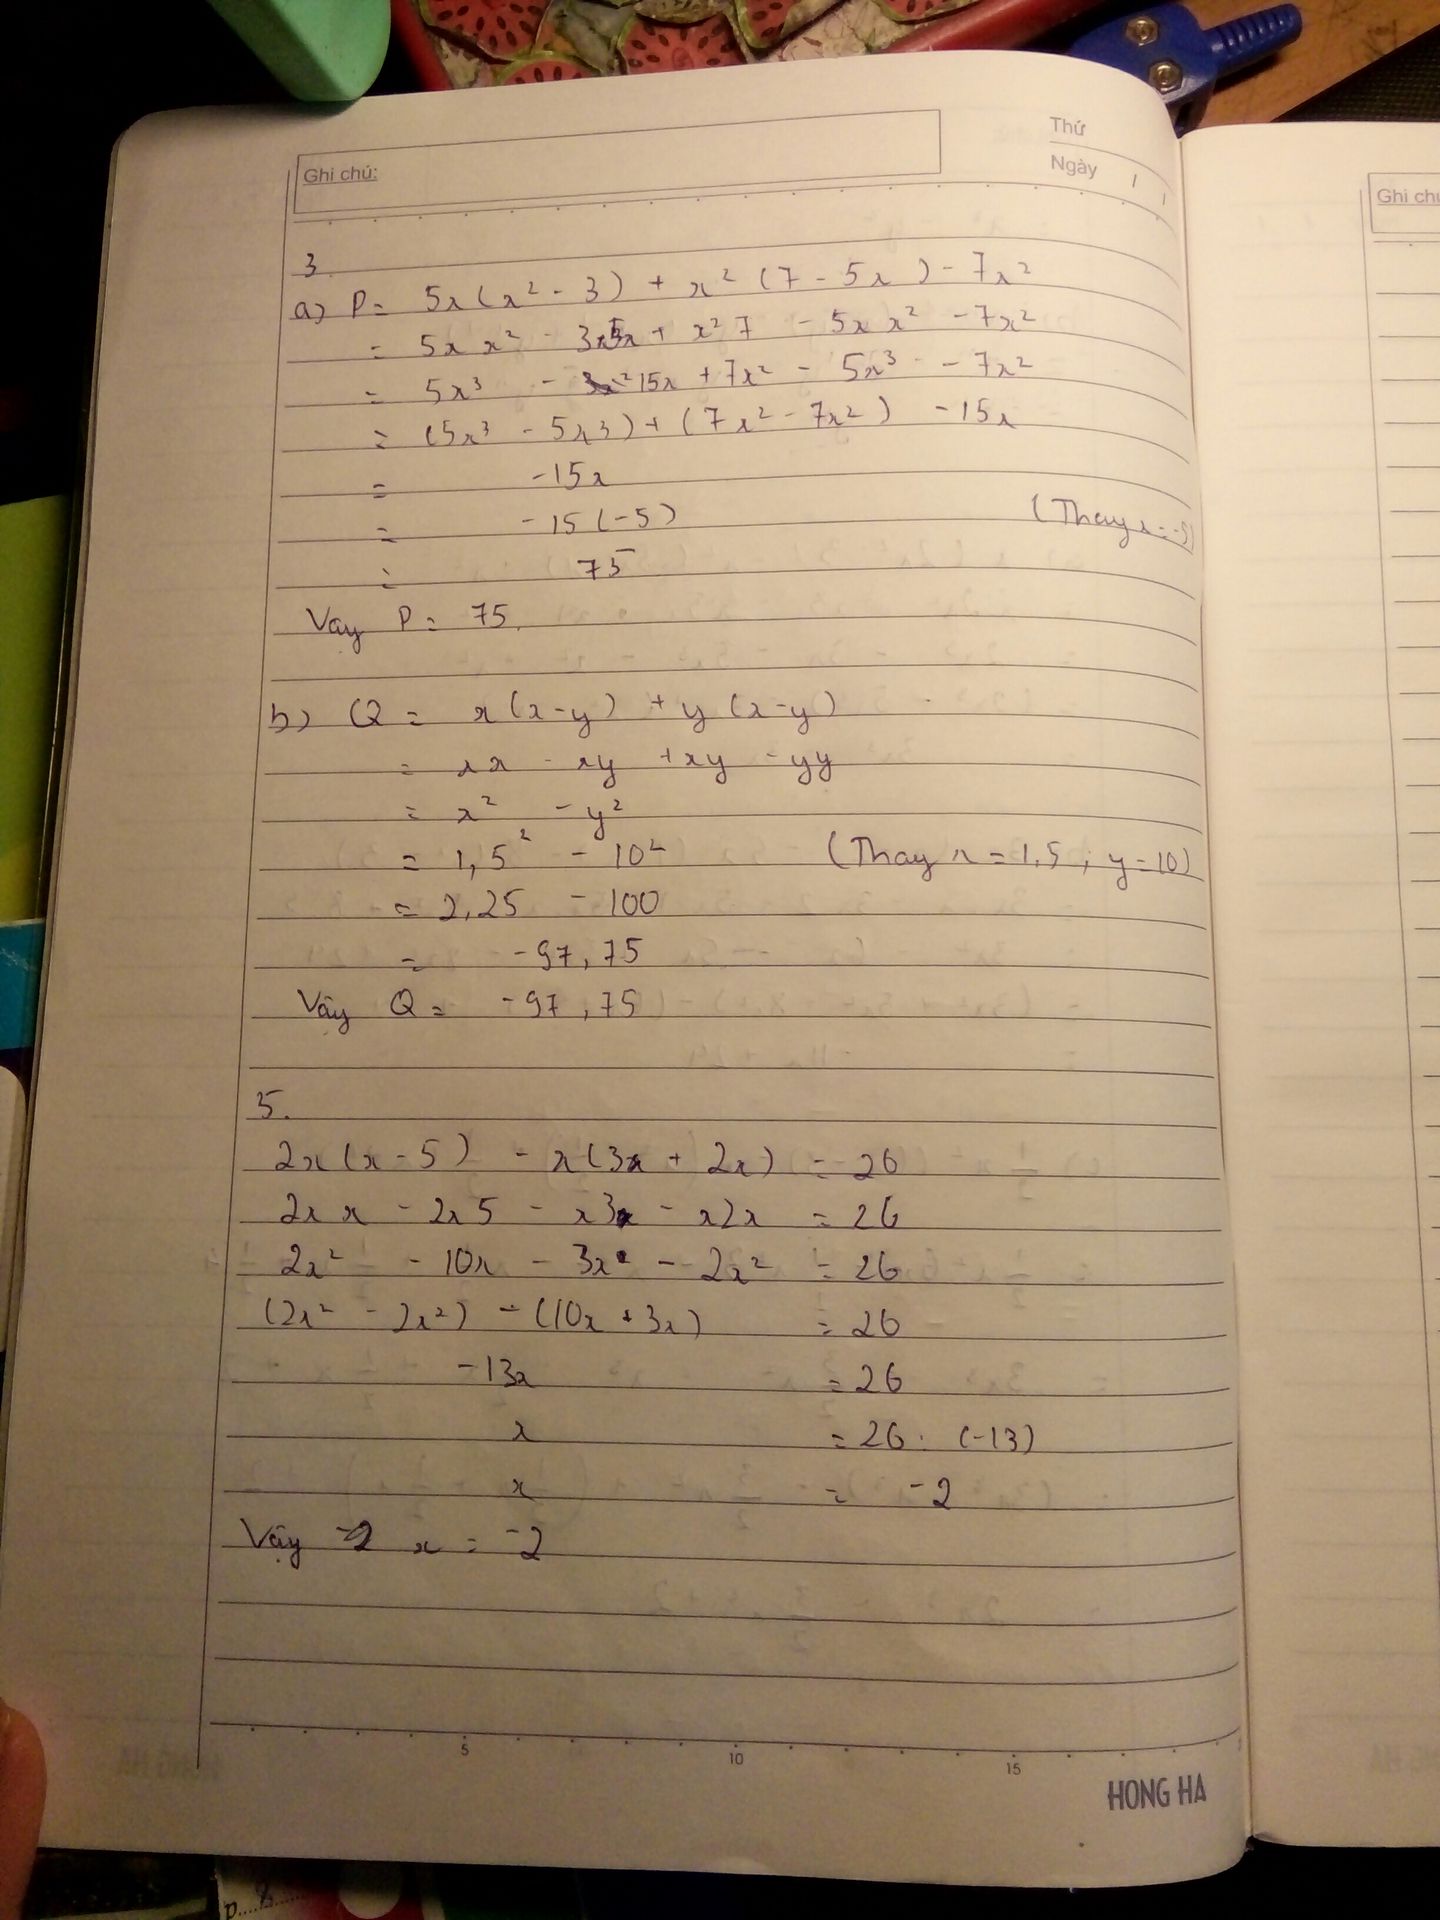 Thứ
Ghi chú:
Ngày / /
Ghi chú
3.
a) P = 5x(x² - 3) + x²(7 - 5x) - 7x²
= 5x x² - 3x5x + x²7 - 5x x² - 7x²
= 5x³ - 15x + 7x² - 5x³ - 7x²
= (5x³ - 5x3) + (7x² - 7x²) - 15x
= -15x
= -15(-5) (Thay x = -5)
= 75
Vậy P = 75.
b) Q = x(x-y) + y(x-y)
= xx - xy + xy - yy
= x² - y²
= 1,5² - 10² (Thay x = 1,5 ; y = 10)
= 2,25 - 100
= -97,75
Vây Q = -97,75
5.
2x(x-5) - x(3x + 2x) = 26
2x x - 2x5 - x3 - x2x = 26
2x² - 10x - 3x - 2x² = 26
(2x² - 2x²) - (10x + 3x) = 26
-13x = 26
x = 26 : (-13)
x = -2
Vậy x = -2
5 10 15
HONG HA
p....8......